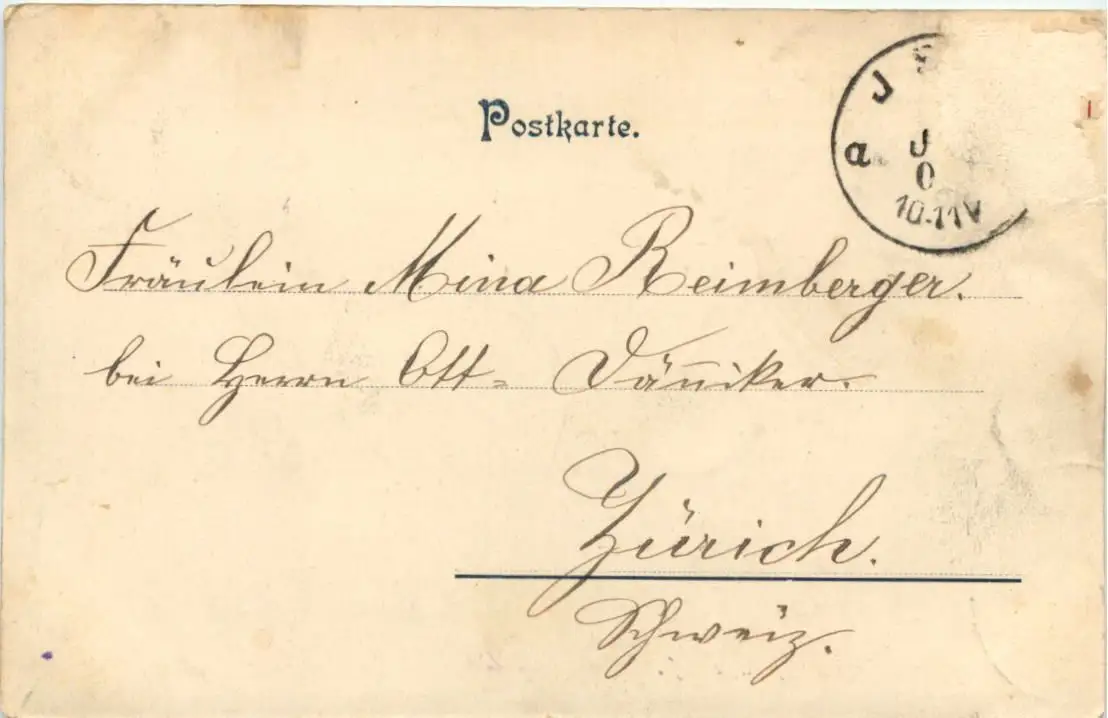 Postkarte.
a J
J
0
10-11V
Fräulein Mina Reimberger.
bei Herrn Ott-Däniker.
Zürich.
Schweiz.